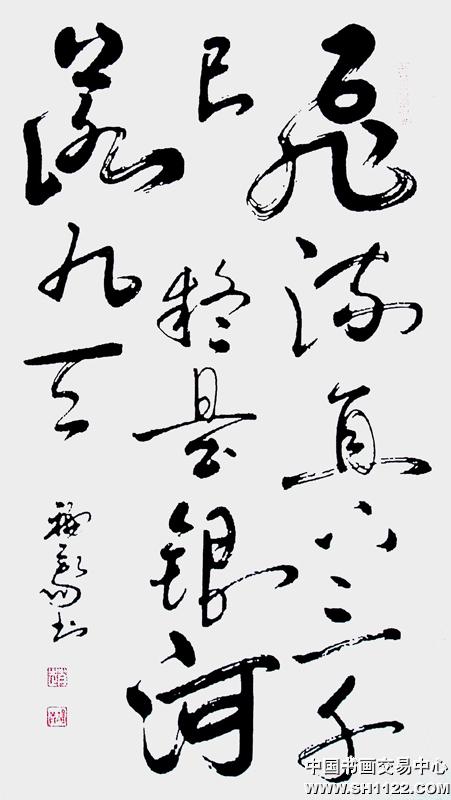 飛流直下三千
尺疑是銀河
落九天
中国书画交易中心
WWW.SH1122.COM